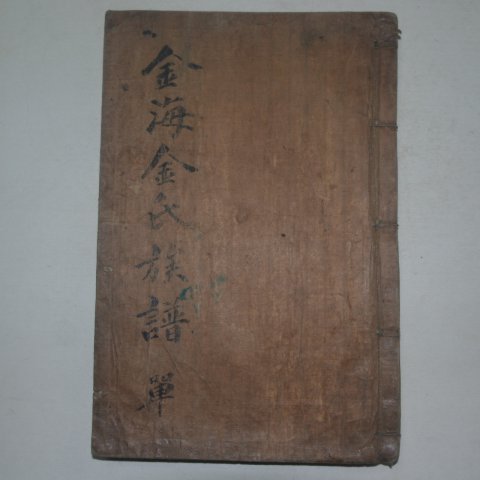 金海金氏族譜 單